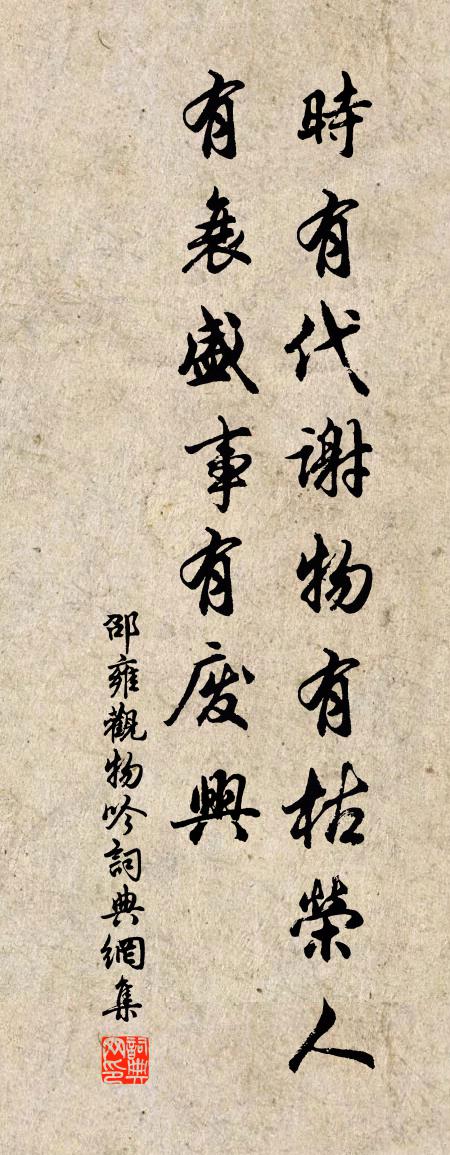 時有代謝物有枯榮人
有衰盛事有废興
邵雍觀物吟詞典網集
詞典网印